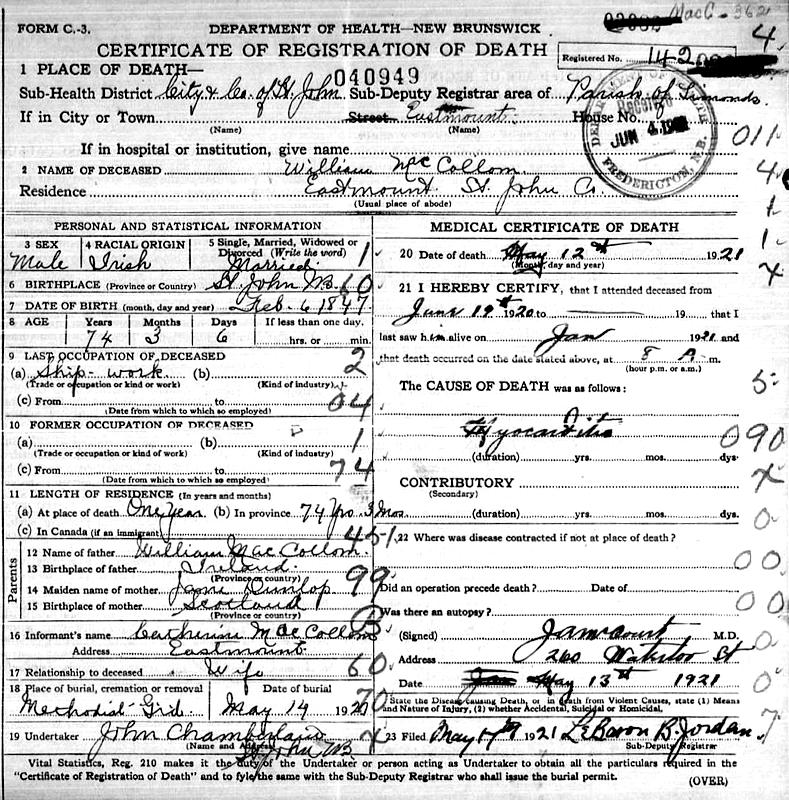 MacC - 362
FORM C.-3. DEPARTMENT OF HEALTH—NEW BRUNSWICK 4
CERTIFICATE OF REGISTRATION OF DEATH Registered No. 142
1 PLACE OF DEATH— 040949
Sub-Health District City & Co. of St. John Sub-Deputy Registrar area of Parish of Simonds.
If in City or Town Street Eastmount. House No.
(Name) (Name)
DEPARTMENT OF HEALTH
JUN 4 1921
FREDERICTON, N.B.
011
If in hospital or institution, give name
2 NAME OF DECEASED William MacCollom. 4
Residence Eastmount St. John Co. 1
(Usual place of abode)
PERSONAL AND STATISTICAL INFORMATION
3 SEX 4 RACIAL ORIGIN 5 Single, Married, Widowed or Divorced (Write the word) 1
Male Irish Married
6 BIRTHPLACE (Province or Country) St. John NB. 60
7 DATE OF BIRTH (month, day and year) Feb. 6, 1847
8 AGE Years Months Days If less than one day.
74 3 6 hrs. or min.
9 LAST OCCUPATION OF DECEASED 2
(a) Ship-work (b)
(Trade or occupation or kind or work) (Kind of industry)
(c) From to 04
(Date from which to which so employed)
10 FORMER OCCUPATION OF DECEASED
(a) (b) 1
(Trade or occupation or kind of work) (Kind of industry)
(c) From to 74
(Date from which to which so employed)
11 LENGTH OF RESIDENCE (In years and months)
(a) At place of death One Year (b) In province 74 Yrs. 3 Mos.
(c) In Canada (if an immigrant) 451
Parents
12 Name of father William MacCollom.
13 Birthplace of father Ireland.
(Province or country) 99
14 Maiden name of mother Jane Dunlop
15 Birthplace of mother Scotland
(Province or country)
16 Informant's name Catherine MacCollom
Address Eastmount
17 Relationship to deceased Wife 60
18 Place of burial, cremation or removal Date of burial 70
Methodist Grd. May 14 1921
19 Undertaker John Chamberlain X
(Name and Address) St. John NB
MEDICAL CERTIFICATE OF DEATH
20 Date of death May 12th 1921 1
(Month, day and year) X
21 I HEREBY CERTIFY, that I attended deceased from
June 19th 1920 to 19 that I
last saw him alive on Jan 1921 and
that death occurred on the date stated above, at 8 A m.
(hour p.m. or a.m.)
The CAUSE OF DEATH was as follows: 5
Myocarditis 090
(duration) yrs. mos. dys.
CONTRIBUTORY X
(Secondary)
(duration) yrs. mos. dys. 0
22 Where was disease contracted if not at place of death?
00
Did an operation precede death? Date of
Was there an autopsy? 00
(Signed) M.D. 0
Address 260 Waterloo St
Date May 13th 1921 0
State the Disease causing Death, or in death from Violent Causes, state (1) Means
and Nature of Injury, (2) whether Accidental, Suicidal or Homicidal. 7
23 Filed May 1921 LeBaron B. Jordan
Sub-Deputy Registrar
Vital Statistics, Reg. 210 makes it the duty of the Undertaker or person acting as Undertaker to obtain all the particulars required in the
"Certificate of Registration of Death" and to fyle the same with the Sub-Deputy Registrar who shall issue the burial permit. (OVER)